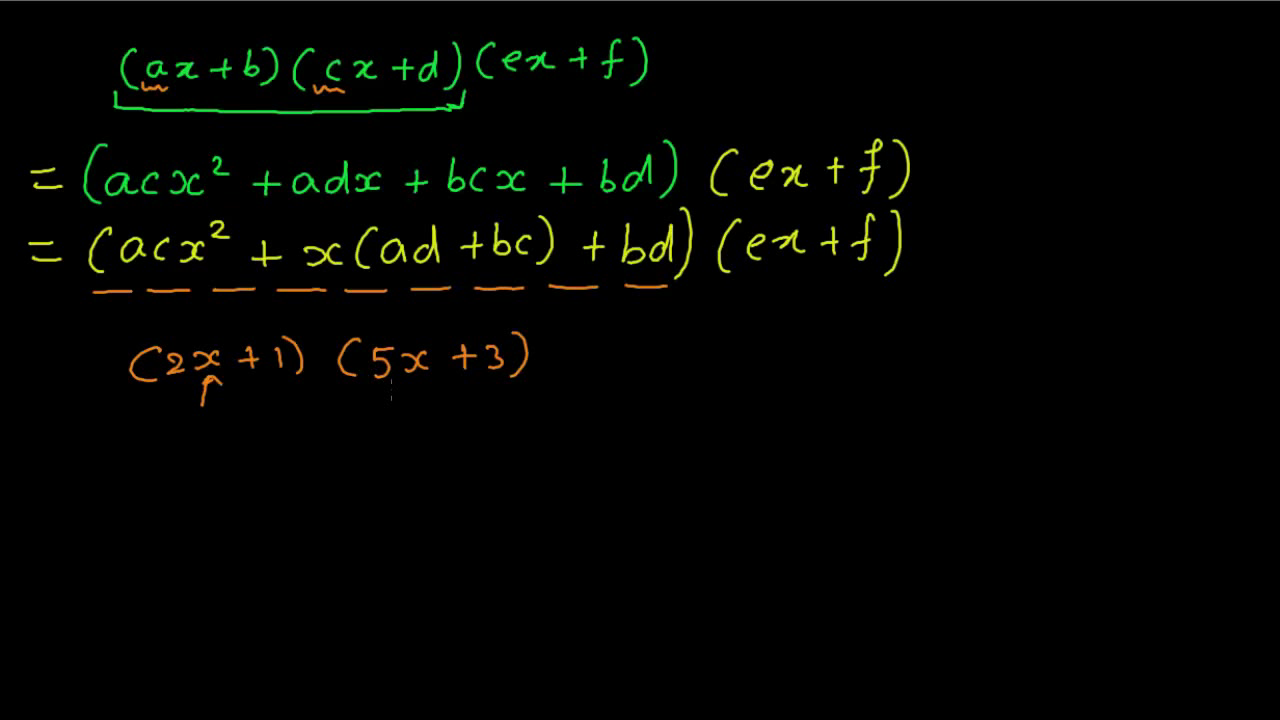 (ax+b)(cx+d)(ex+f)
= (acx² + adx + bcx + bd) (ex + f)
= (acx² + x(ad + bc) + bd) (ex + f)
(2x + 1) (5x + 3)